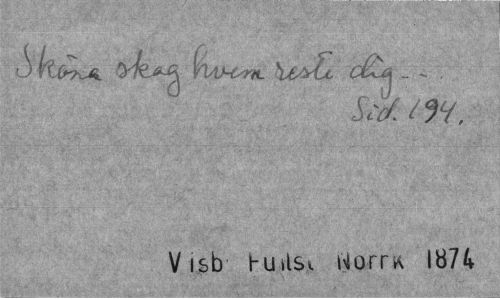 Sköna skog hvem reste dig...
Sid. 194.
Visb Norrk 1874